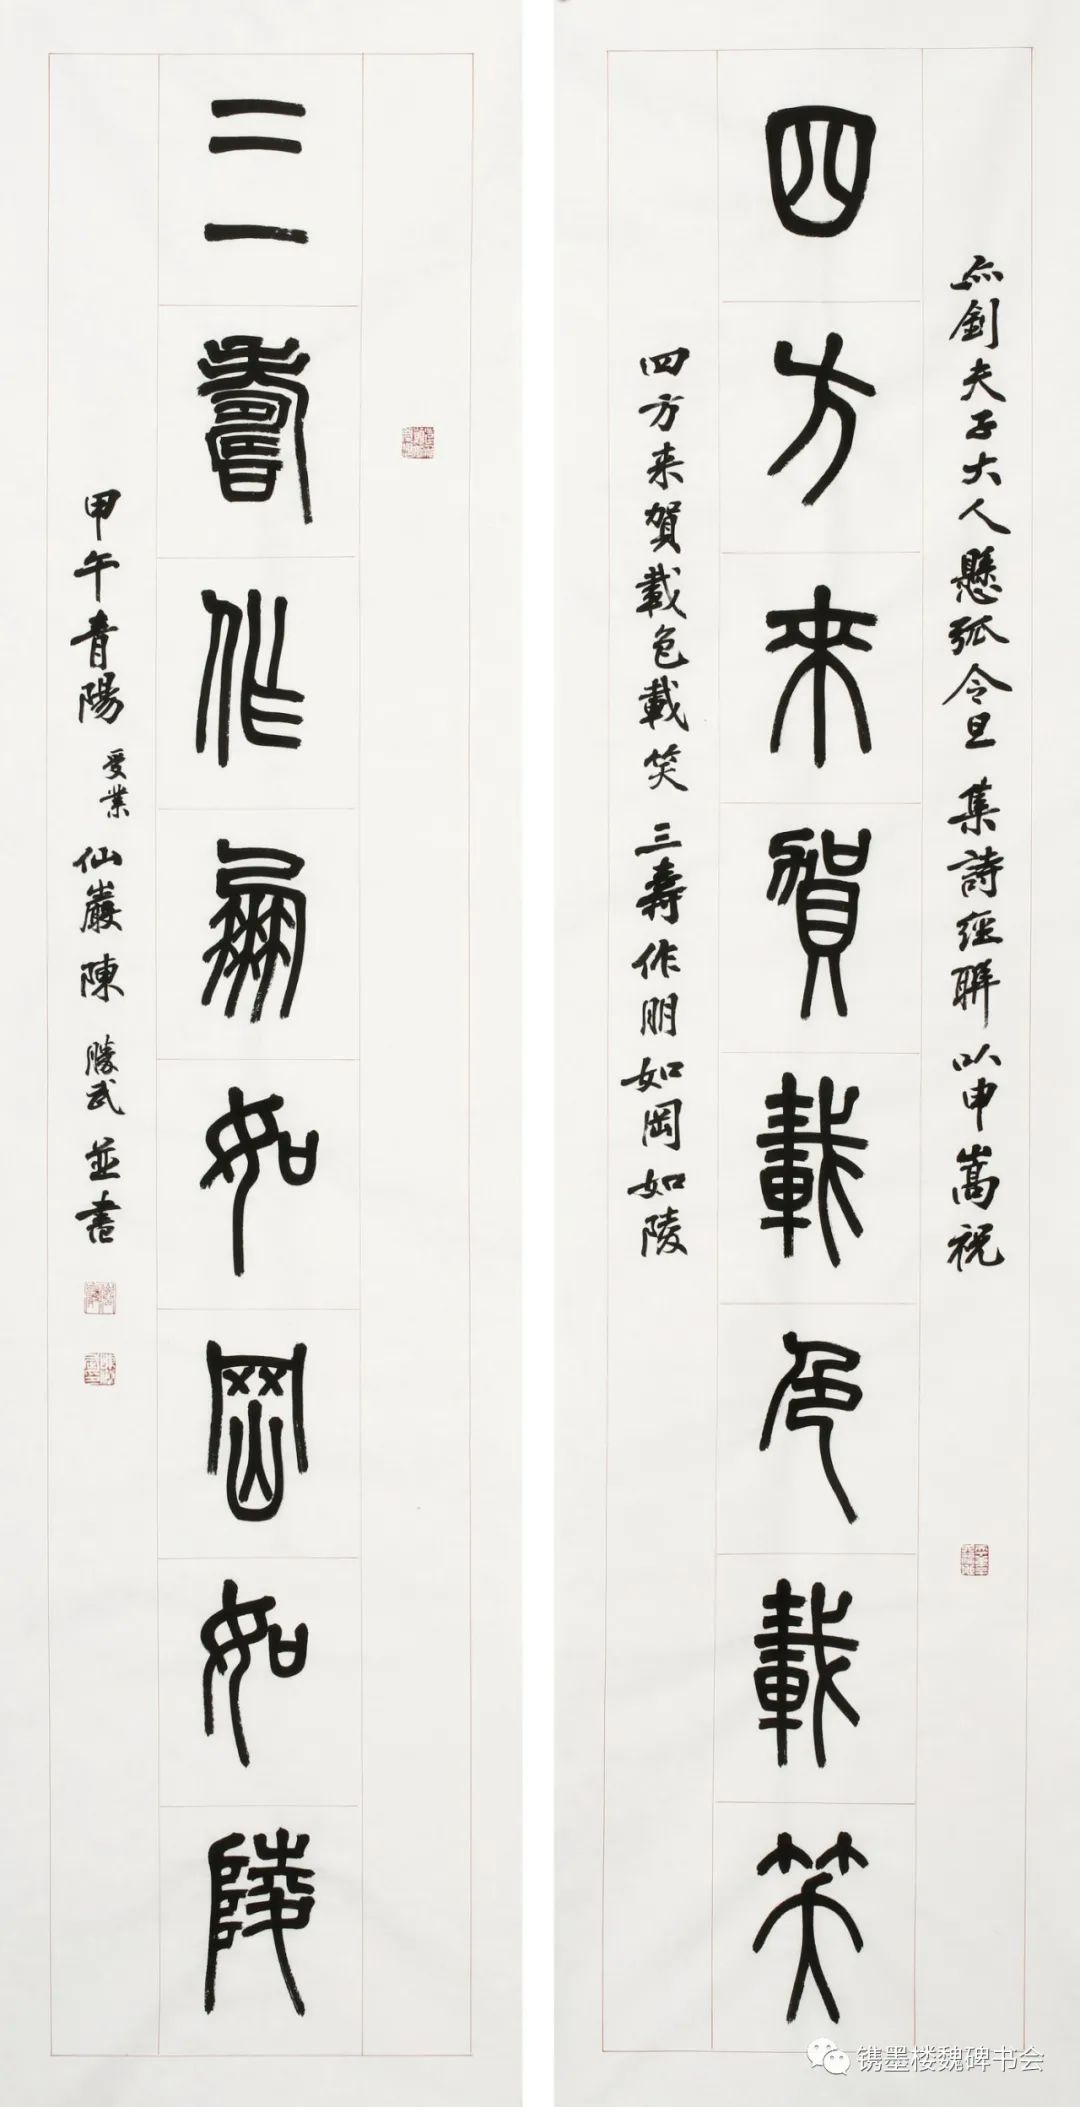 㷀劍夫子大人懸弧令旦 集詩經聯 以申嵩祝
四方来賀載色載笑
四方来賀載色載笑 三壽作朋如岡如陵
三壽作朋如岡如陵
甲午青陽 受業 仙巖陳 勝武 並書
镌墨楼魏碑书会